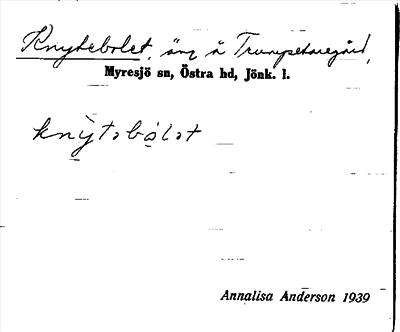 Knytebolet, äng å Trumpetaregård,
Myresjö sn, Östra hd, Jönk. l.
knỳtəbo̱lət
Annalisa Anderson 1939